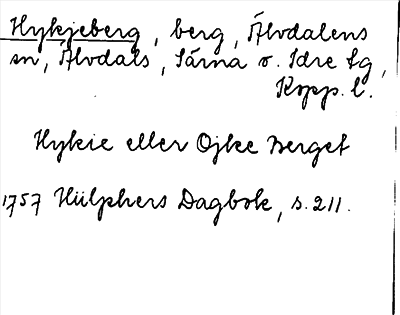 Hykjeberg, berg, Älvdalens
sn, Älvdals, Särna o. Idre tg,
Kopp. l.
Hykie eller Ojke Berget
1757 Hülphers Dagbok, s. 211.